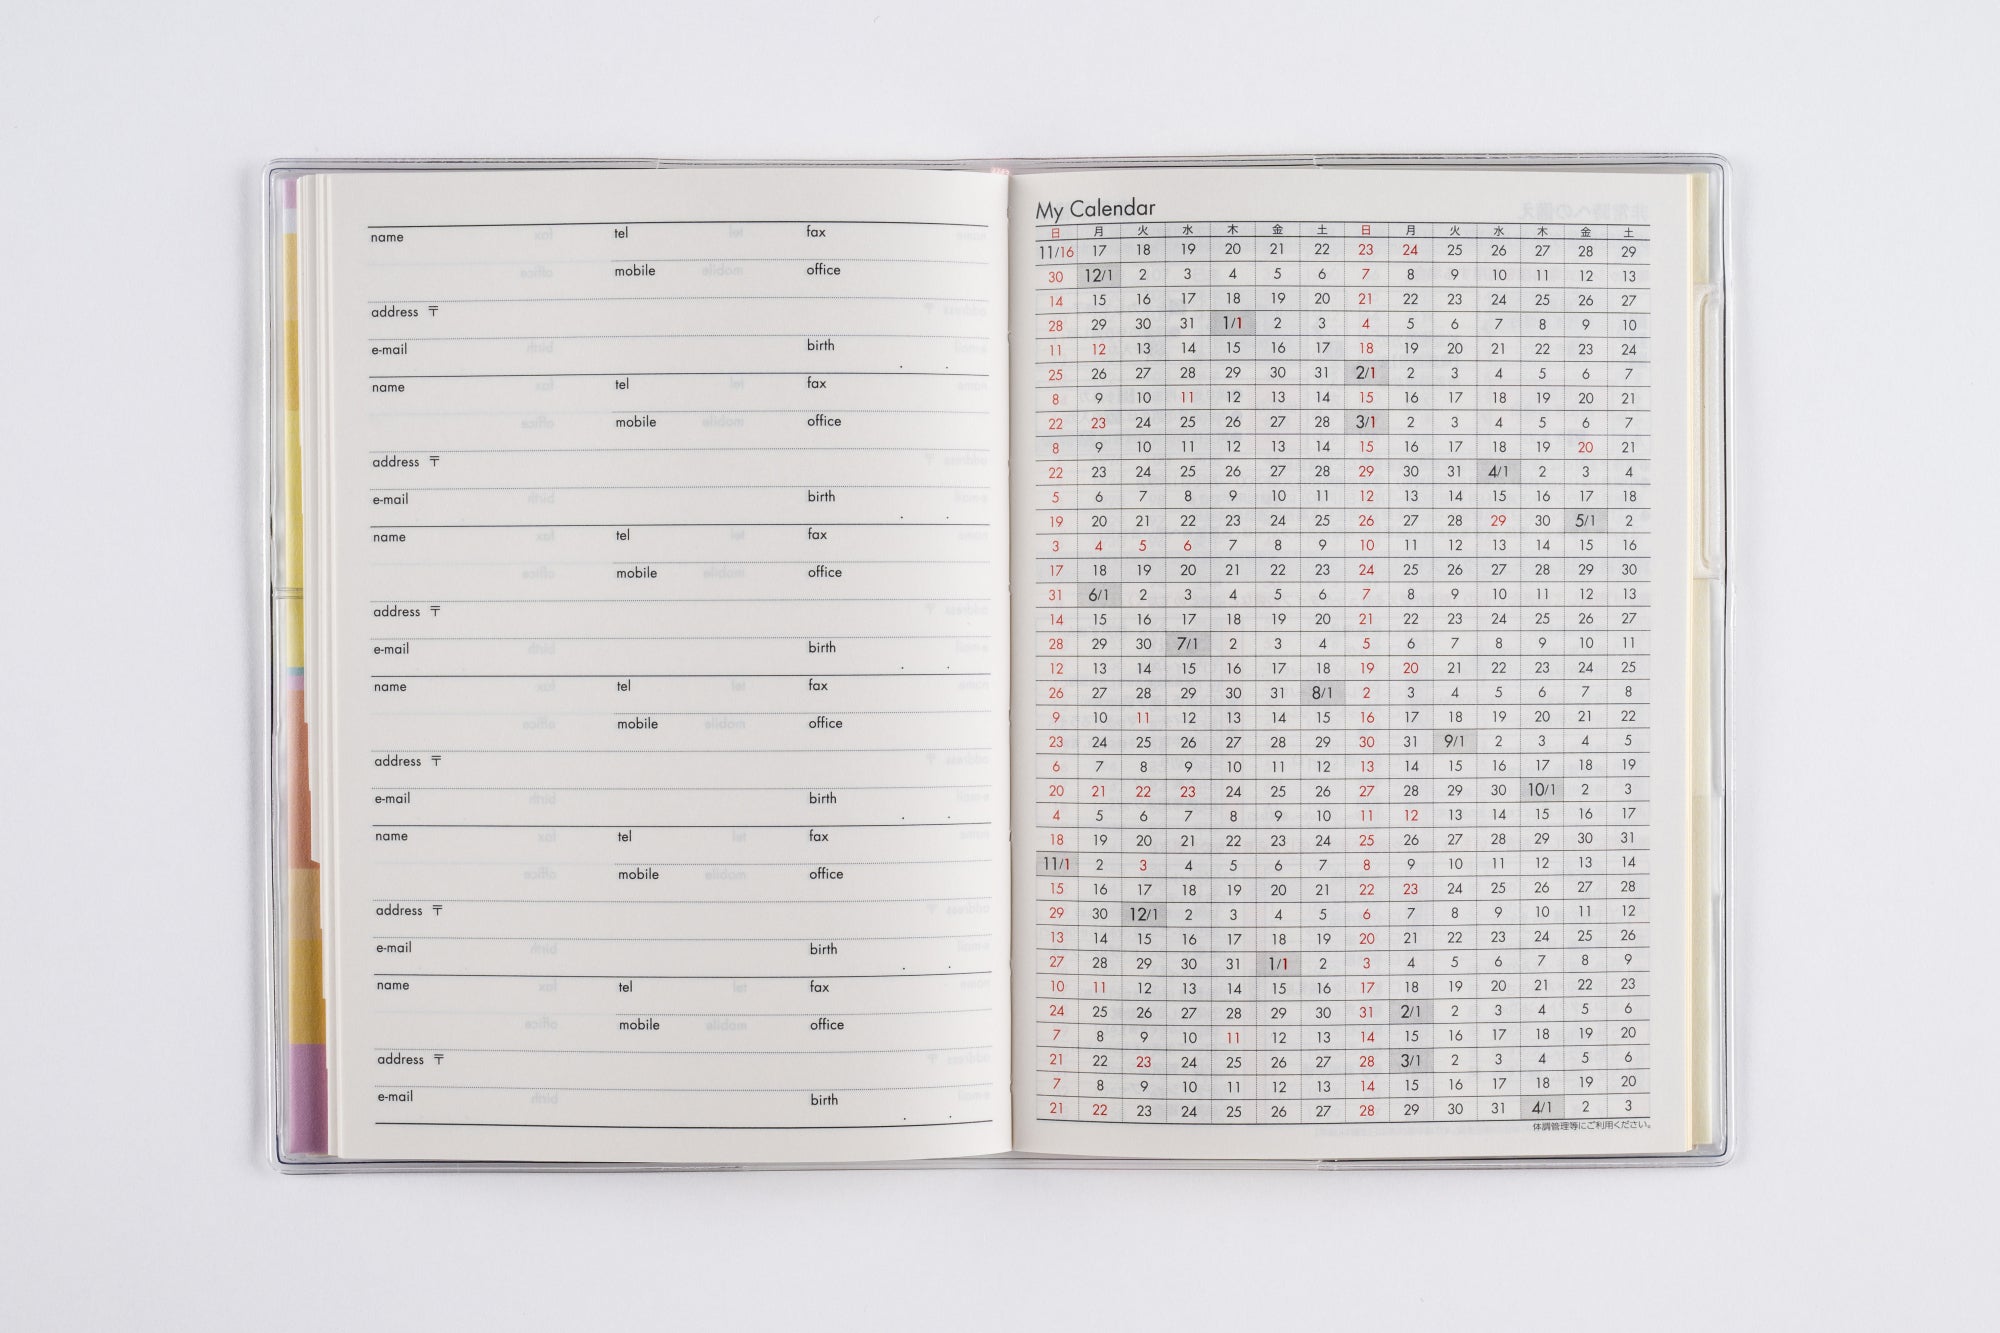 name tel fax
mobile office
address 〒
e-mail birth . .
name tel fax
mobile office
address 〒
e-mail birth . .
name tel fax
mobile office
address 〒
e-mail birth . .
name tel fax
mobile office
address 〒
e-mail birth . .
name tel fax
mobile office
address 〒
e-mail birth . .
name tel fax
mobile office
address 〒
e-mail birth . .
My Calendar
日 月 火 水 木 金 土 日 月 火 水 木 金 土
11/16 17 18 19 20 21 22 23 24 25 26 27 28 29
30 12/1 2 3 4 5 6 7 8 9 10 11 12 13
14 15 16 17 18 19 20 21 22 23 24 25 26 27
28 29 30 31 1/1 2 3 4 5 6 7 8 9 10
11 12 13 14 15 16 17 18 19 20 21 22 23 24
25 26 27 28 29 30 31 2/1 2 3 4 5 6 7
8 9 10 11 12 13 14 15 16 17 18 19 20 21
22 23 24 25 26 27 28 3/1 2 3 4 5 6 7
8 9 10 11 12 13 14 15 16 17 18 19 20 21
22 23 24 25 26 27 28 29 30 31 4/1 2 3 4
5 6 7 8 9 10 11 12 13 14 15 16 17 18
19 20 21 22 23 24 25 26 27 28 29 30 5/1 2
3 4 5 6 7 8 9 10 11 12 13 14 15 16
17 18 19 20 21 22 23 24 25 26 27 28 29 30
31 6/1 2 3 4 5 6 7 8 9 10 11 12 13
14 15 16 17 18 19 20 21 22 23 24 25 26 27
28 29 30 7/1 2 3 4 5 6 7 8 9 10 11
12 13 14 15 16 17 18 19 20 21 22 23 24 25
26 27 28 29 30 31 8/1 2 3 4 5 6 7 8
9 10 11 12 13 14 15 16 17 18 19 20 21 22
23 24 25 26 27 28 29 30 31 9/1 2 3 4 5
6 7 8 9 10 11 12 13 14 15 16 17 18 19
20 21 22 23 24 25 26 27 28 29 30 10/1 2 3
4 5 6 7 8 9 10 11 12 13 14 15 16 17
18 19 20 21 22 23 24 25 26 27 28 29 30 31
11/1 2 3 4 5 6 7 8 9 10 11 12 13 14
15 16 17 18 19 20 21 22 23 24 25 26 27 28
29 30 12/1 2 3 4 5 6 7 8 9 10 11 12
13 14 15 16 17 18 19 20 21 22 23 24 25 26
27 28 29 30 31 1/1 2 3 4 5 6 7 8 9
10 11 12 13 14 15 16 17 18 19 20 21 22 23
24 25 26 27 28 29 30 31 2/1 2 3 4 5 6
7 8 9 10 11 12 13 14 15 16 17 18 19 20
21 22 23 24 25 26 27 28 3/1 2 3 4 5 6
7 8 9 10 11 12 13 14 15 16 17 18 19 20
21 22 23 24 25 26 27 28 29 30 31 4/1 2 3
体調管理等にご利用ください。